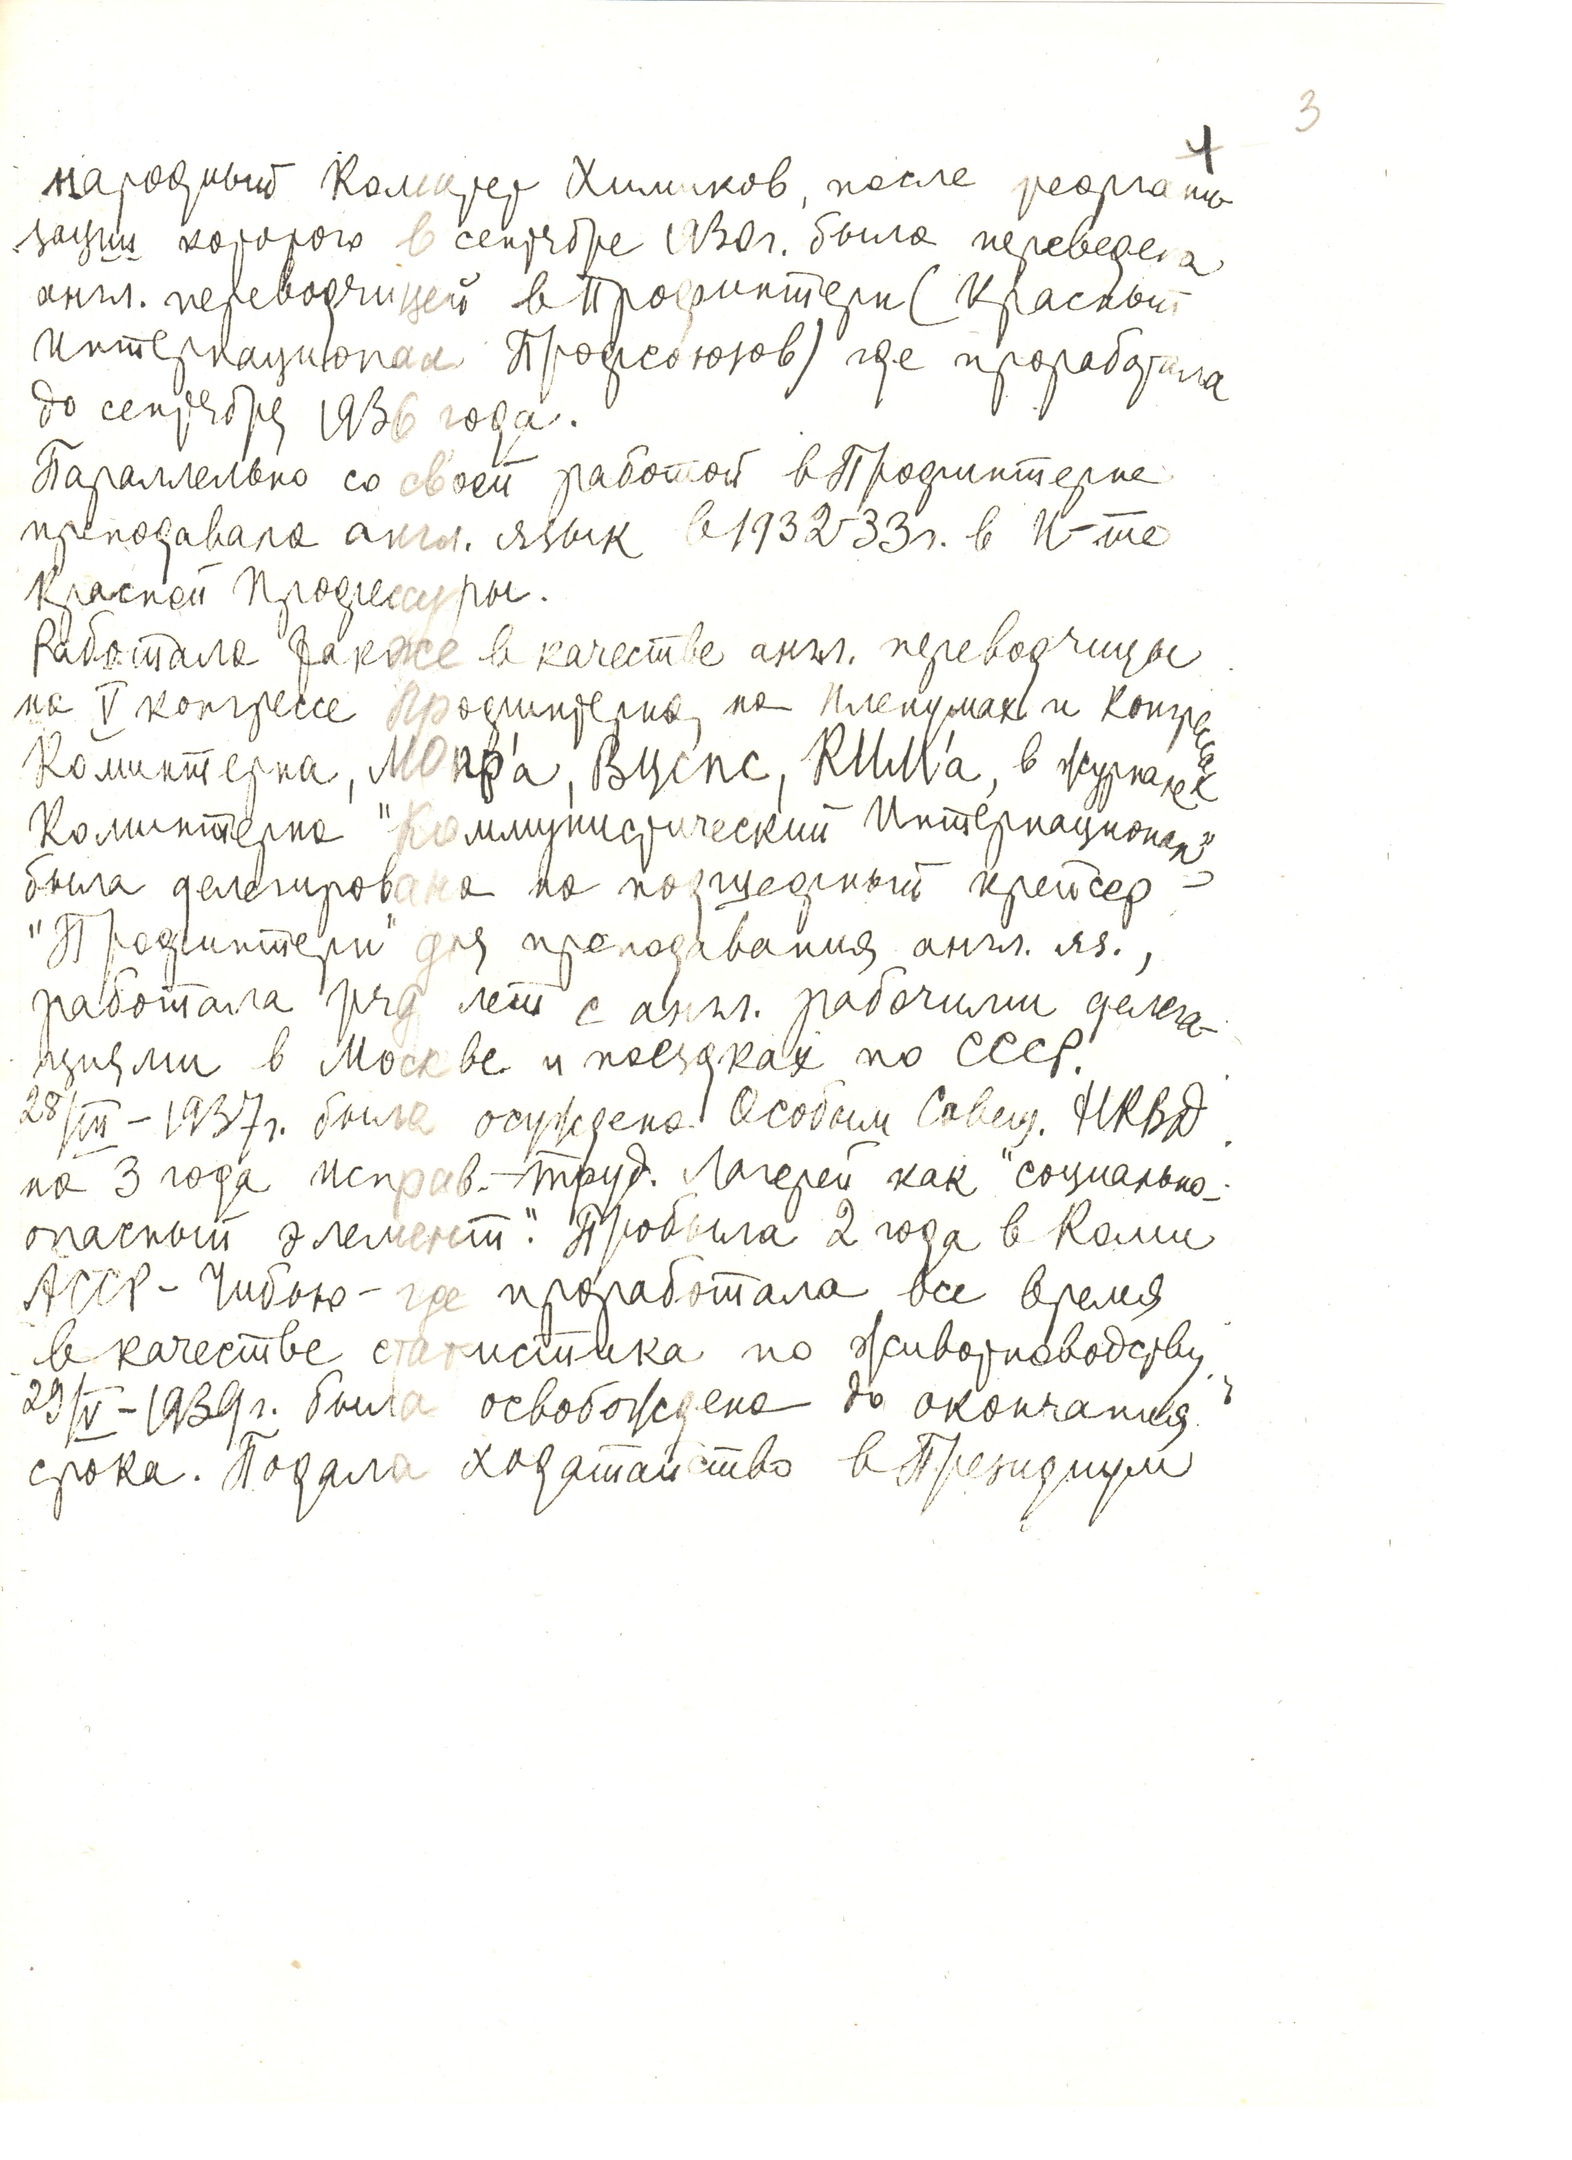 3
4
народный Комитет Химиков, после реоргани
зации которого в сентябре 1930г. была переведена
англ. переводчицей в Профинтерн (Красный
Интернационал Профсоюзов) где проработала
до сентября 1936 года.
Параллельно со своей работой в Профинтерне
преподавала англ. язык в 1932-33г. в И-те
Красной Профессуры.
Работала также в качестве англ. переводчицы
на V конгрессе Профинтерна, на пленумах и Конгрессах
Коминтерна, МОПР'а, ВЦСПС, КИМ'а, в журналах
Коминтерна "Коммунистический Интернационал"
была делегирована на подшефный крейсер -
"Профинтерн" для преподавания англ. яз.,
работала ряд лет с англ. рабочими делега-
циями в Москве и поездках по СССР.
28/III - 1937г. была осуждена Особым Совещ. НКВД
на 3 года исправ.-труд. Лагерей как "социально-
опасный элемент". Пробыла 2 года в Коми
АССР - Чибью - где проработала все время
в качестве статистика по животноводству,
29/V - 1939г. была освобождена до окончания
срока. Подала ходатайство в Президиум